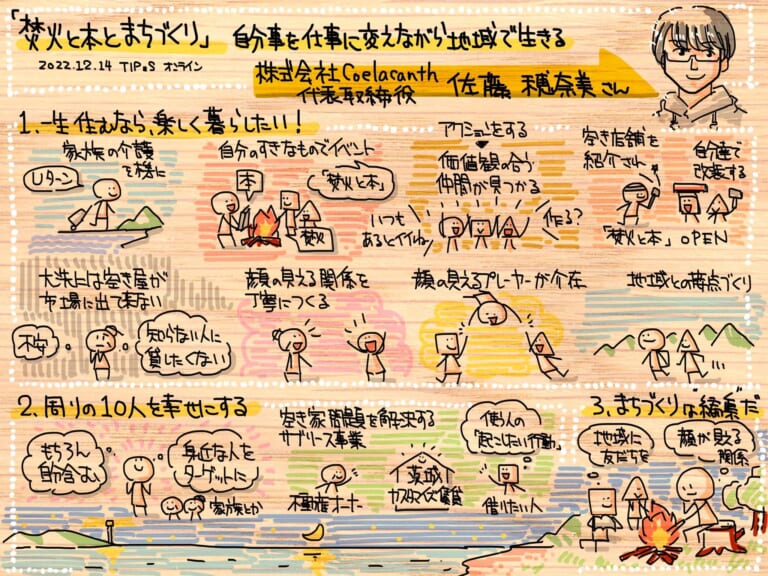 「焚火と本とまちづくり」
自分事を仕事に変えながら地域で生きる
2022.12.14 TIPeS オンライン
株式会社Coelacanth
代表取締役
佐藤 穂奈美さん
1.一生住むなら、楽しく暮らしたい!
家族の介護
を機に
Uターン
自分のすきなものでイベント
本
「焚火と本」
焚火
アクションをする
価値観の合う
仲間が見つかる
いつも
あるとイイね
作る?
空き店舗を
紹介さん
自分達で
改装する
「焚火と本」OPEN
大洗には空き屋が
市場に出て来ない
不安
知らない人に
貸したくない
顔の見える関係を
丁寧につくる
顔の見えるプレーヤーが介在
地域との接点づくり
2.周りの10人を幸せにする
もちろん
自分含む
身近な人を
ターゲットに
家族とか
空き家問題を解決する
サブリース事業
不動産オーナー
茨城
カスタマイズ賃貸
使う人の
「起こしたい行動」
借りたい人
3.まちづくりは"編集"だ
地域に
友だちを
顔が見える
関係